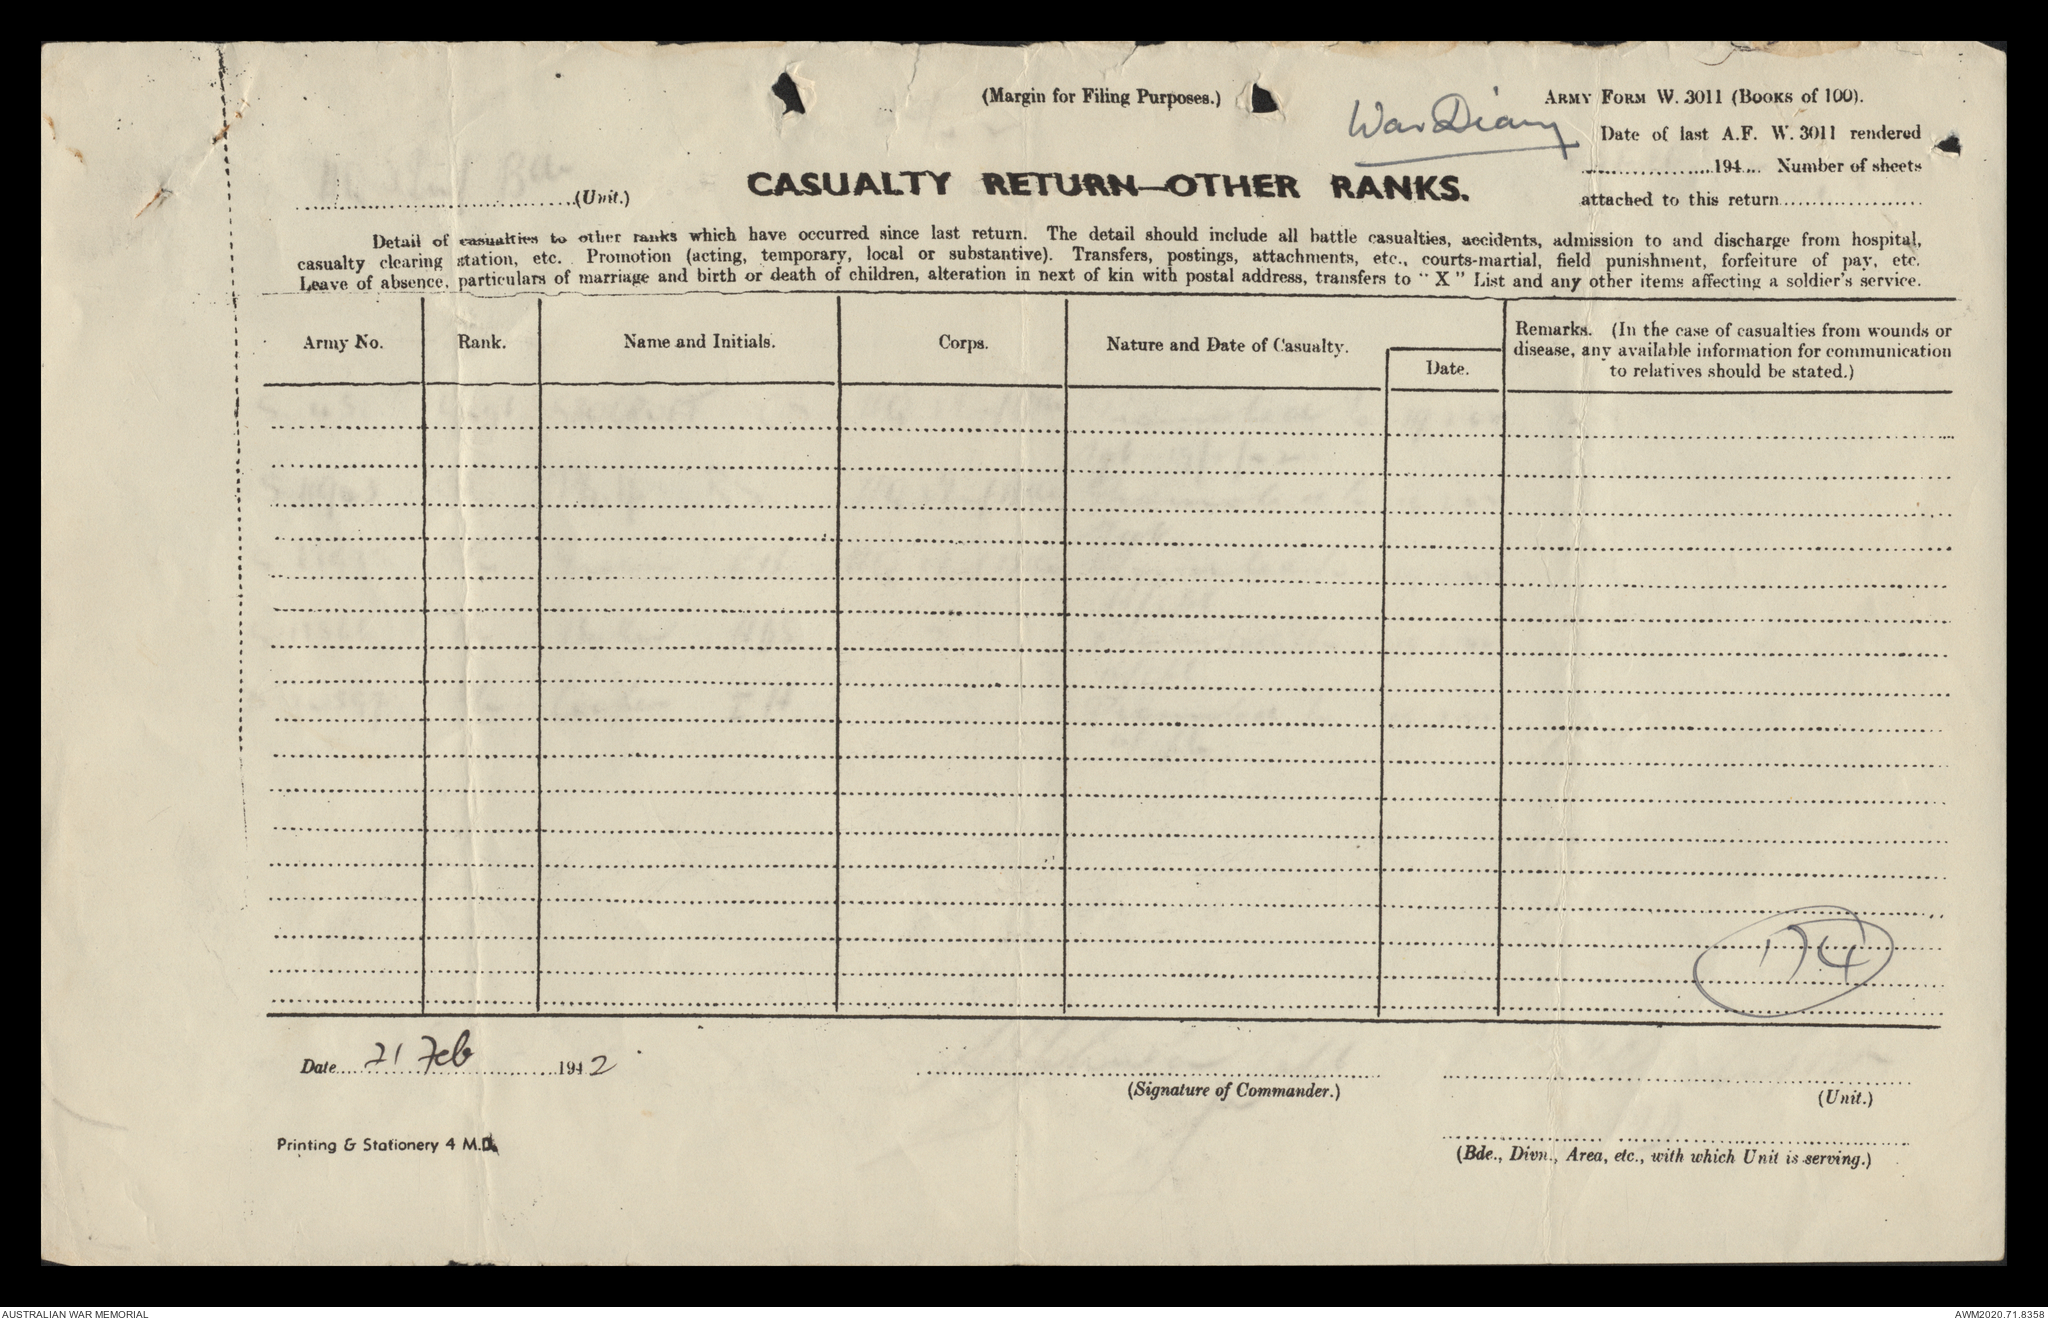 (Margin for Filing Purposes.)
ARMY FORM W. 3011 (BOOKS of 100).
War Diary
Date of last A.F. W. 3011 rendered
194 Number of sheets
attached to this return
(Unit.)
CASUALTY RETURN—OTHER RANKS.
Detail of casualties to other ranks which have occurred since last return. The detail should include all battle casualties, accidents, admission to and discharge from hospital,
casualty clearing station, etc. Promotion (acting, temporary, local or substantive). Transfers, postings, attachments, etc., courts-martial, field punishment, forfeiture of pay, etc.
Leave of absence, particulars of marriage and birth or death of children, alteration in next of kin with postal address, transfers to "X" List and any other items affecting a soldier's service.
Army No.
Rank.
Name and Initials.
Corps.
Nature and Date of Casualty.
Date.
Remarks. (In the case of casualties from wounds or
disease, any available information for communication
to relatives should be stated.)
174
Date 21 Feb 1942
(Signature of Commander.)
(Unit.)
Printing & Stationery 4 M.D.
(Bde., Divn., Area, etc., with which Unit is serving.)
AUSTRALIAN WAR MEMORIAL
AWM2020.71.8358